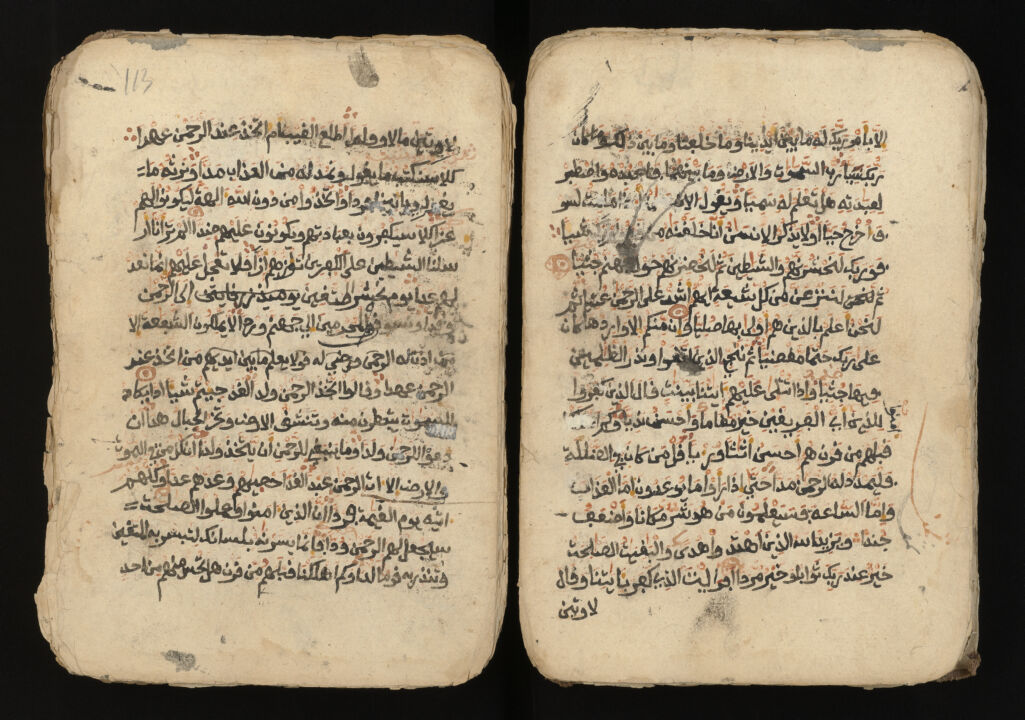 الا بامر ربك له ما بين ايدينا وما خلفنا وما بين ذلك وما كان
ربك نسيا رب السموت والارض وما بينهما فاعبده واصطبر
لعبدته هل تعلم له سميا ويقول الانسن اذا ما مت لسو
ف اخرج حيا اولا يذكر الانسن انا خلقنه من قبل ولم يك شيا
فو ربك لنحشرنهم والشيطين ثم لنحضرنهم حول جهنم جثيا
ثم لننزعن من كل شيعة ايهم اشد على الرحمن عتيا ثم
لنحن اعلم بالذين هم اولى بها صليا وان منكم الا واردها كان
على ربك حتما مقضيا ثم ننجي الذين اتقوا ونذر الظلمين
فيها جثيا واذا تتلى عليهم ايتنا بينت قال الذين كفروا
للذين امنوا اي الفريقين خير مقاما واحسن نديا وكم اهلكنا
قبلهم من قرن هم احسن اثثا وريا قل من كان في الضللة
فليمدد له الرحمن مدا حتى اذا راوا ما يوعدون اما العذاب
واما الساعة فسيعلمون من هو شر مكانا واضعف
جندا ويزيد الله الذين اهتدوا هدى والبقيت الصلحت
خير عند ربك ثوابا وخير مردا افرايت الذي كفر بايتنا وقال
لاوتين
113
لاوتين مالا وولدا اطلع الغيب ام اتخذ عند الرحمن عهدا
كلا سنكتب ما يقول ونمد له من العذاب مدا ونرثه ما
يقول وياتينا فردا واتخذوا من دون الله الهة ليكونوا لهم
عزا كلا سيكفرون بعبادتهم ويكونون عليهم ضدا الم تر انا ار
سلنا الشيطين على الكفرين تؤزهم ازا فلا تعجل عليهم انما نعد
لهم عدا يوم نحشر المتقين الى الرحمن
وفدا ونسوق المجرمين الى جهنم وردا لا يملكون الشفعة الا
من اتخذ عند
الرحمن عهدا وقالوا اتخذ الرحمن ولدا لقد جيتم شيا ادا يكاد
السموت يتفطرن منه وتنشق الارض وتخر الجبال هدا ان
دعوا للرحمن ولدا وما ينبغي للرحمن ان يتخذ ولدا ان كل من في السموت
والارض الا ات الرحمن عبدا لقد احصيهم وعدهم عدا وكلهم
اتيه يوم القيمة فردا ان الذين امنوا وعملوا الصلحت
سيجعل لهم الرحمن ودا فانما يسرنه بلسانك لتبشر به المتقين
وتنذر به قوما لدا وكم اهلكنا قبلهم من قرن هل تحس منهم من احد